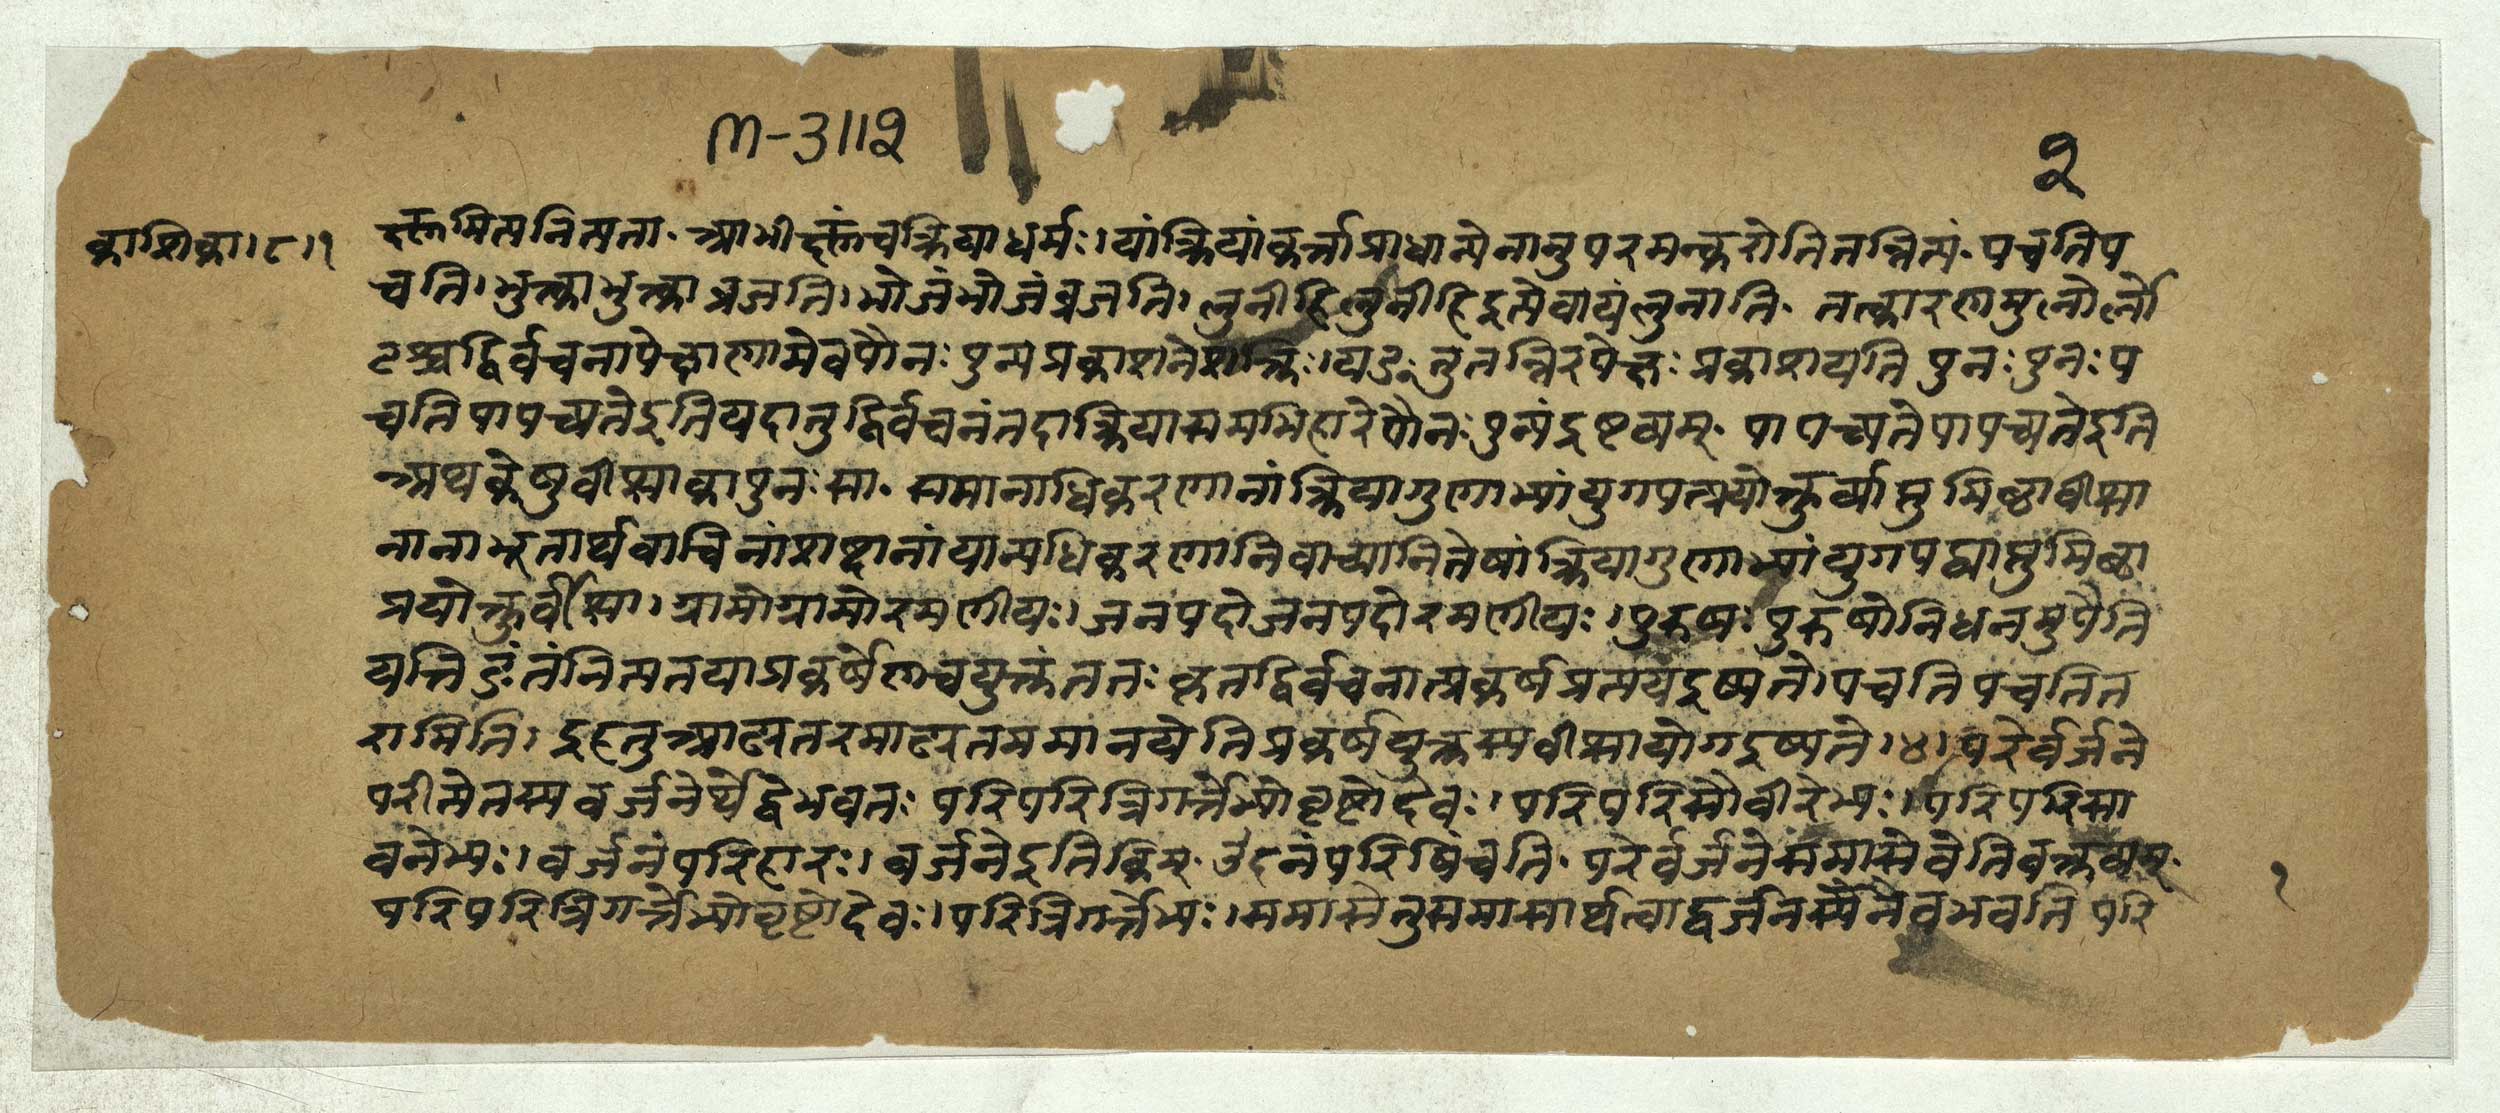 M-3112
२
काशिका।८।१
क्ष्णमित्यनित्यता. आभीक्ष्णंचक्रियाधर्मः। यांक्रियांकर्त्ताप्राधान्येनानुपरमन्करोतितन्नित्यं. पचतिप
चति। भुक्त्काभुक्त्का व्रजति। भोजंभोजंव्रजति। लुनीहिलुनीहिइत्येवायंलुनाति. तत्काणमुलोर्लो
टश्चद्विर्वचनापेक्षाणामेवपौनःपुन्यप्रकाशनेशक्तिः। यङ् तुतन्निरपेक्षः प्रकाशयति पुनःपुनःप
चतिपापच्यतेइतियदातुद्विर्वचनंतदाक्रियासमभिहारेपौनःपुन्यंद्रष्टव्यम्. पापच्यतेपापच्यतेइति
अथकेषुवीप्साकापुनःसा. समानाधिकरणानांक्रियागुणाभ्यांयुगपत्प्रयोक्तुर्व्याप्तुमिच्छावीप्सा
नानाभूतार्थवाचिनांशब्दानांयान्यधिकरणानिवाच्यानितेषांक्रियागुणाभ्यांयुगपद्व्याप्तुमिच्छा
प्रयोक्तुर्वीप्सा। ग्रामोग्रामोरमणीयः। जनपदोजनपदोरमणीयः। पुरुषःपुरुषोनिधनमुपैति
यत्तिङंतंनित्यतयाप्रकर्षेणचयुक्तंततः कृतद्विर्वचनात्प्रकर्षप्रत्ययइष्यते। पचतिपचतित
रामिति। इहतुआढ्यतरमाढ्यतममानयेतिप्रकर्षयुक्तस्यवीप्सायोगइष्यते।४।परेर्वर्जने
परीत्येतस्यवर्जनेर्थेद्वेभवतः परिपरित्रिगर्त्तेभ्योवृष्टोदेवः। परिपरिसौवीरेभ्यः। परिपरिसा
वनेभ्यः। वर्जनंपरिहारः। वर्जनेइतिकिम्. ओदनंपरिषिंचति. परेर्वर्जनेसमासेवेतिवक्तव्यम्.
परिपरित्रिगर्त्तेभ्योवृष्टोदेवः। परित्रिगर्त्तेभ्यः। समासेतुसमासार्थत्वाद्वर्जनस्येनैवभवति परि
१